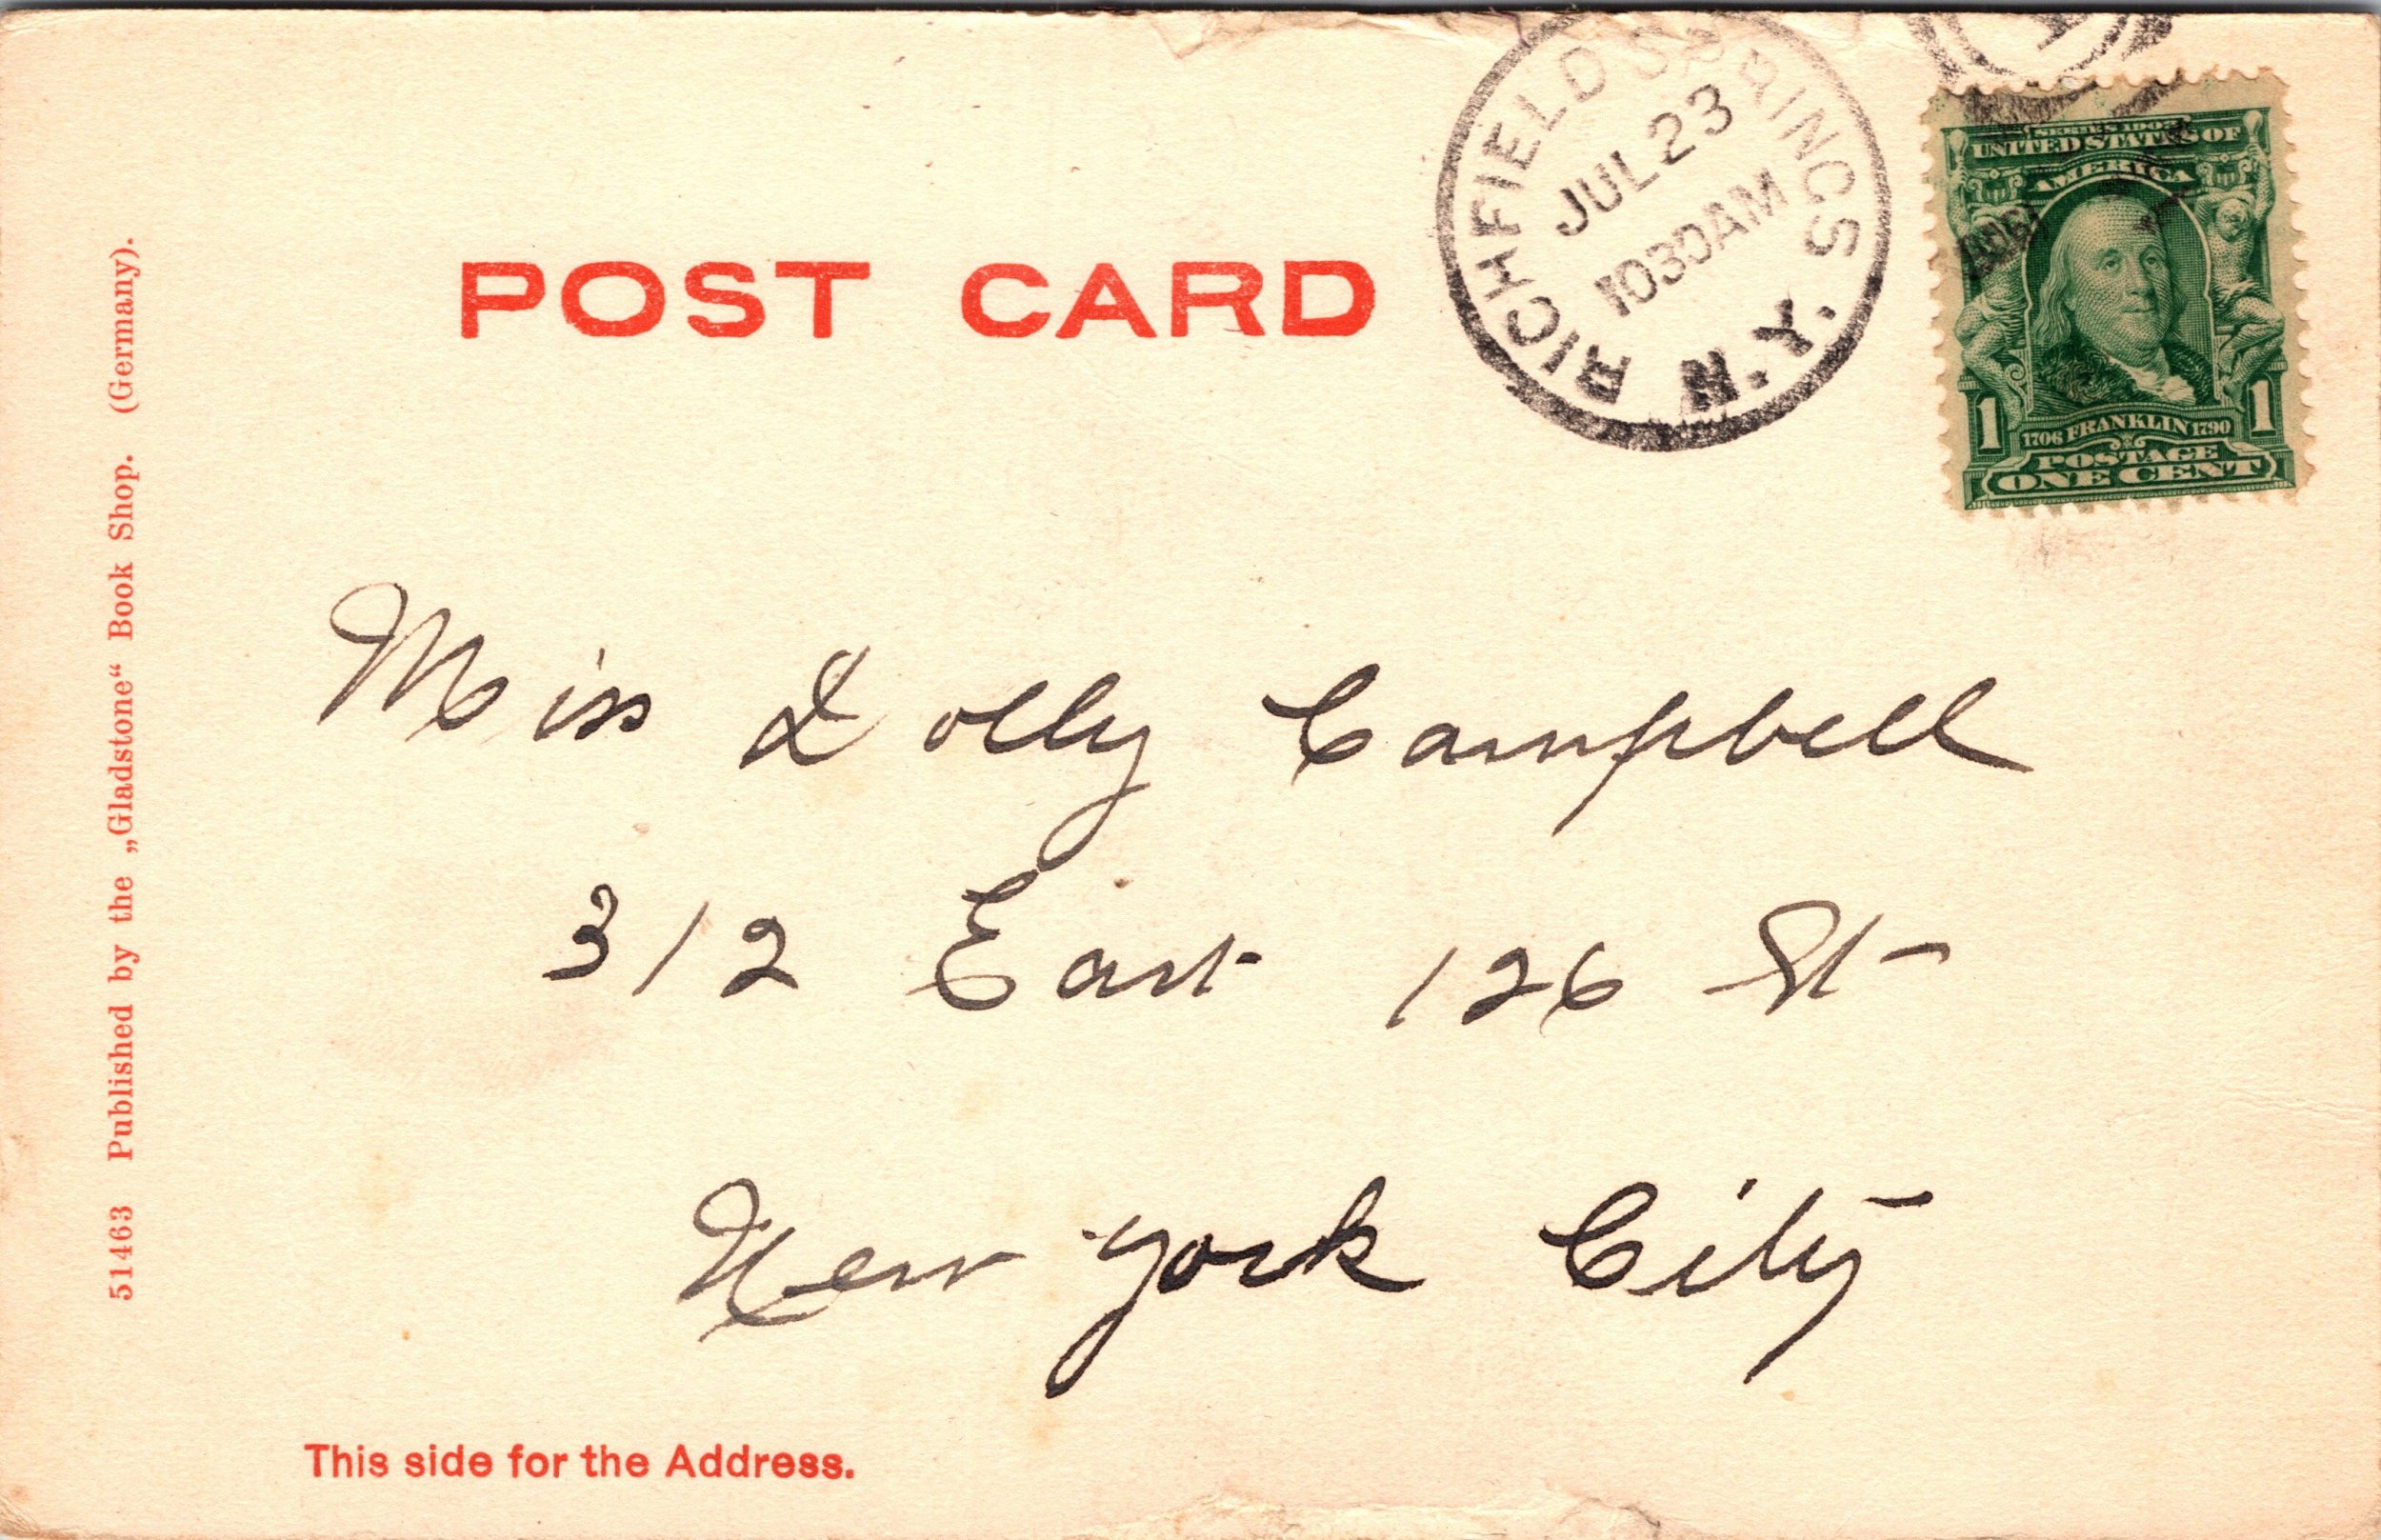 POST CARD
RICHFIELD SPRINGS
JUL 23
1030AM
N.Y.
SERIES 1902
UNITED STATES OF
AMERICA
1 1
1706 FRANKLIN 1790
POSTAGE
ONE CENT
Miss Dolly Campbell
312 East 126 St
New York City
This side for the Address.
51463 Published by the „Gladstone“ Book Shop. (Germany).